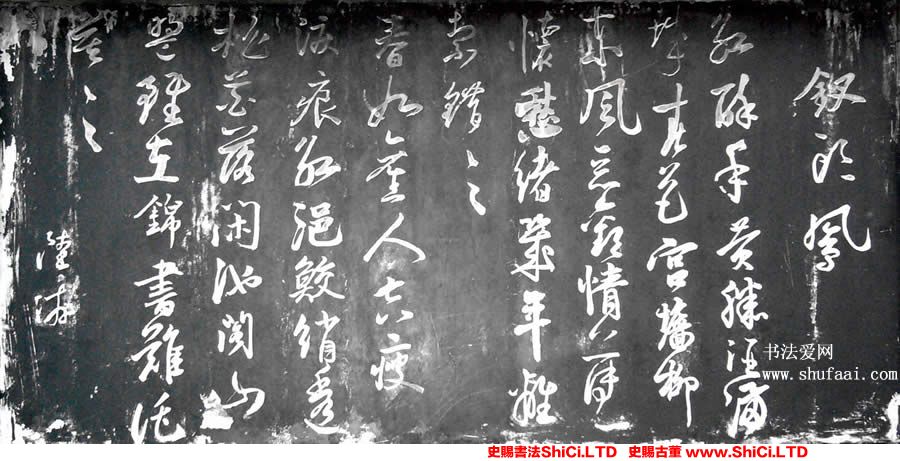 釵頭鳳
紅酥手黃縢酒滿
城春色宮牆柳
東風惡歡情薄一
懷愁緒幾年離
索錯々々
春如舊人空瘦
淚痕紅浥鮫綃透
桃花落閑池閣山
盟雖在錦書難託
莫々々
陸游
书法爱网
www.shufaai.com
史賜書法ShiCi.LTD 史賜古董 www.ShiCi.LTD